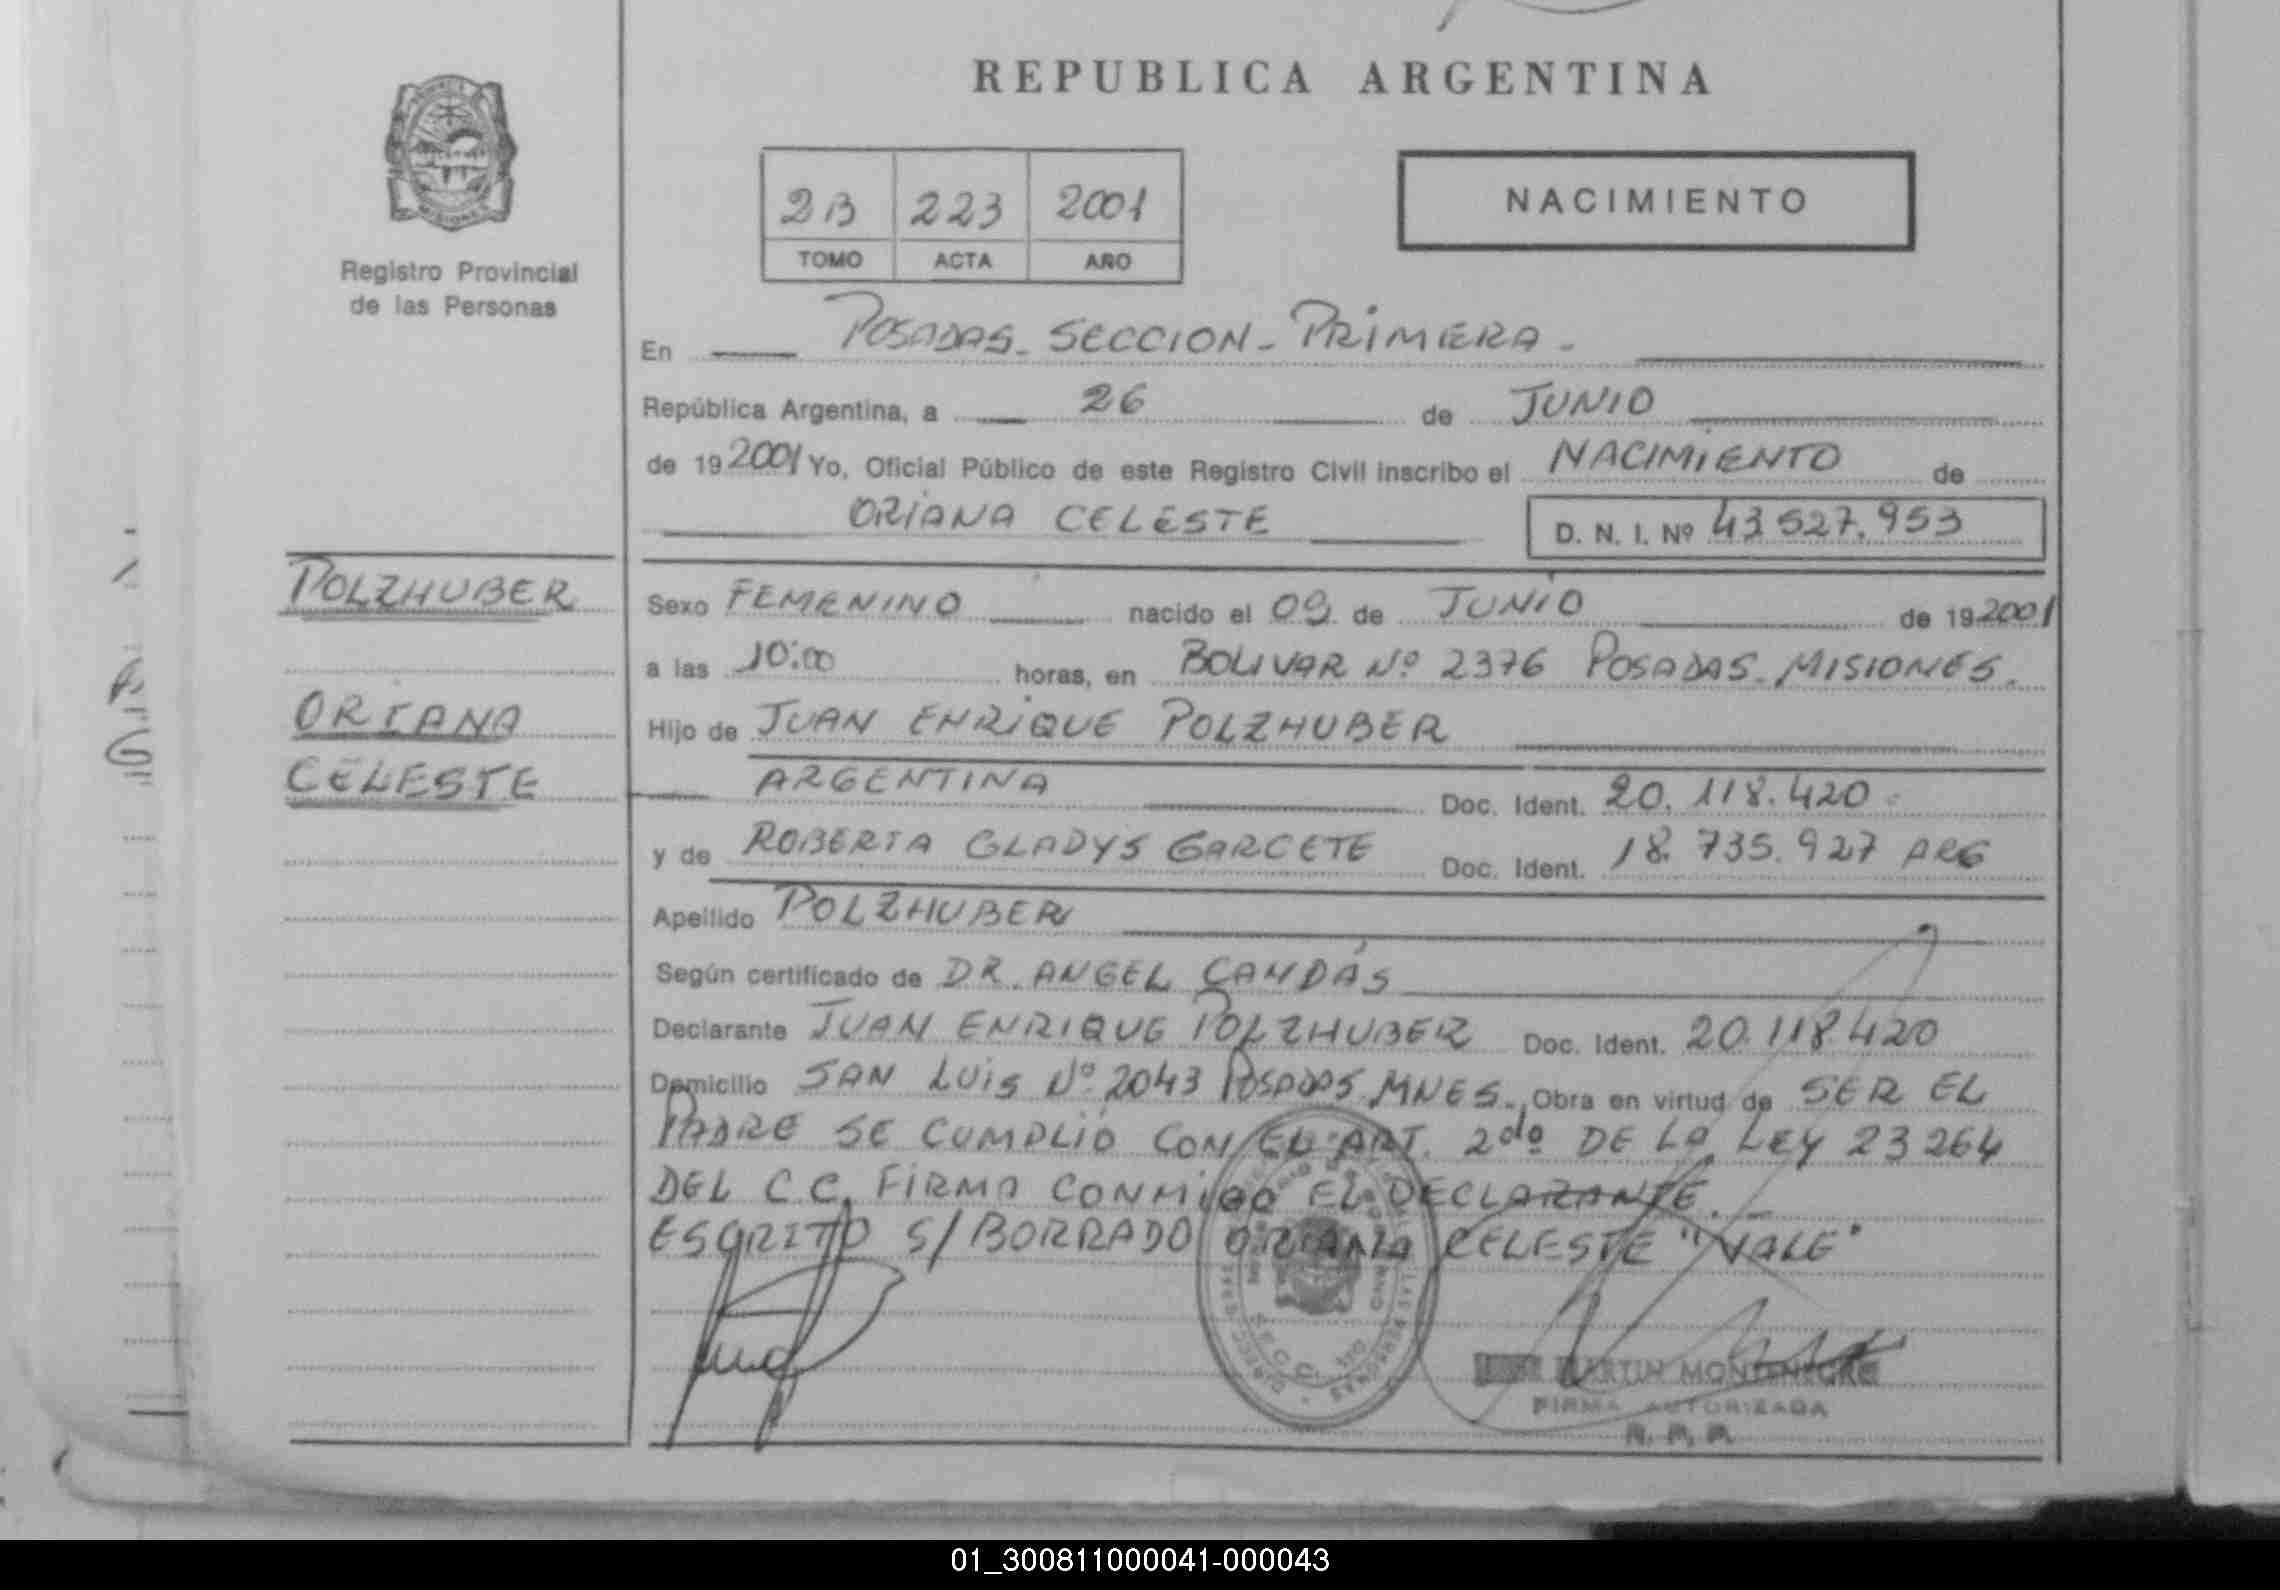 REPUBLICA ARGENTINA
Registro Provincial
de las Personas
2B 223 2001
TOMO ACTA AÑO
NACIMIENTO
En POSADAS - SECCION - PRIMERA -
República Argentina, a 26 de JUNIO
de 19 2001 Yo, Oficial Público de este Registro Civil inscribo el NACIMIENTO de
ORIANA CELESTE D. N. I. Nº 43.527.953
POLZHUBER
ORIANA
CELESTE
Sexo FEMENINO nacido el 09 de JUNIO de 19 2001
a las 10:00 horas, en BOLIVAR Nº 2376 POSADAS - MISIONES.
Hijo de JUAN ENRIQUE POLZHUBER
ARGENTINA Doc. Ident. 20.118.420
y de ROBERTA GLADYS GARCETE Doc. Ident. 18.735.927 ARG
Apellido POLZHUBER
Según certificado de DR. ANGEL CANDÁS
Declarante JUAN ENRIQUE POLZHUBER Doc. Ident. 20.118.420
Domicilio SAN LUIS Nº 2043 POSADAS. MNES. Obra en virtud de SER EL
PADRE SE CUMPLIÓ CON EL ART. 2do DE LA LEY 23264
DEL C.C. FIRMA CONMIGO EL DECLARANTE. -
ESCRITO S/ BORRADO ORIANA CELESTE "VALE"
MARTIN MONTENEGRO
FIRMA AUTORIZADA
R. P. P.
01_300811000041-000043